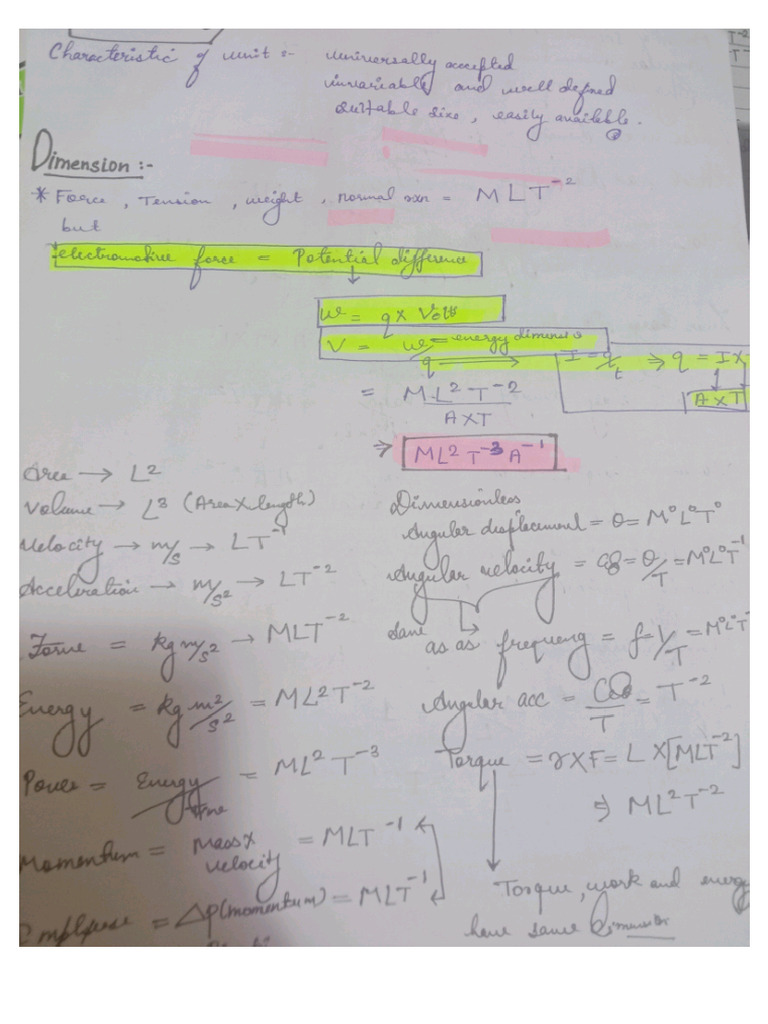 Characteristic of unit :- universally accepted
invariable and well defined
suitable size, easily available.
Dimension :-
* Force, Tension, weight, normal rxn = MLT⁻²
but
Electromotive force = Potential difference
↓
W = q × Volts
V = W/q = energy dimension
I = q/t ⇒ q = I ×
A×T
= ML²T⁻² / A×T
⇒ ML²T⁻³A⁻¹
Area → L²
Volume → L³ (Area × length)
Velocity → m/s → LT⁻¹
Acceleration → m/s² → LT⁻²
Force = kg m/s² → MLT⁻²
Energy = kg m²/s² = ML²T⁻²
Power = Energy/time = ML²T⁻³
Momentum = Mass × velocity = MLT⁻¹
Implpuse = Δp (momentum) = MLT⁻¹
Dimensionless
Angular displacement = θ = M⁰L⁰T⁰
Angular velocity = ω = θ/T = M⁰L⁰T⁻¹
Same as as frequency = f = 1/T = M⁰L⁰T
Angular acc = ω/T = T⁻²
Torque = r×F = L×[MLT⁻²]
⇒ ML²T⁻²
Torque, work and energy
have same Dimension